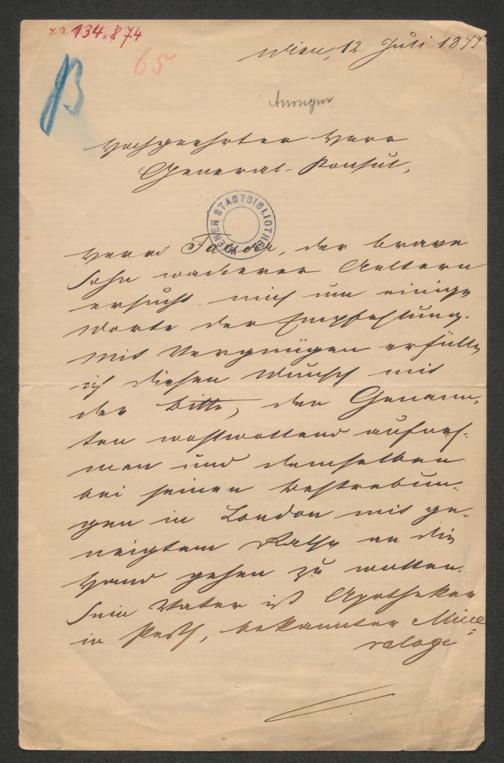 134.874
65
B
Wien, 12. Juli 1877
Hochgeehrter Herr
General-Konsul,
WIENER STADTBIBLIOTHEK
Herr der brave
Sohn wackerer Aeltern
ersucht mich um einige
Worte der Empfehlung.
Mit Vergnügen erfülle
ich diesen Wunsch mit
der Bitte, den Genann-
ten wohlwollend aufneh-
men und demselben
bei seinen Bestrebun-
gen in London mit ge-
neigtem Rathe an die
Hand gehen zu wollen.
Sein Vater ist Apotheker
in Pesth, bekannter Mine-
raloge